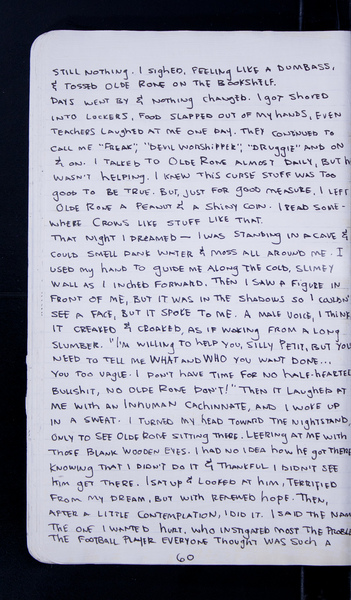 STILL NOTHING. I SIGHED, FEELING LIKE A DUMBASS,
& TOSSED OLDE RONE ON THE BOOKSHELF.
DAYS WENT BY & NOTHING CHANGED. I GOT SHOVED
INTO LOCKERS, FOOD SLAPPED OUT OF MY HANDS, EVEN
TEACHERS LAUGHED AT ME ONE DAY. THEY CONTINUED TO
CALL ME "FREAK", "DEVIL WORSHIPPER", "DRUGGIE" AND ON
& ON. I TALKED TO OLDE RONE ALMOST DAILY, BUT H
WASN'T HELPING. I KNEW THIS CURSE STUFF WAS TOO
GOOD TO BE TRUE. BUT, JUST FOR GOOD MEASURE, I LEFT
OLDE RONE A PEANUT & A SHINY COIN. I READ SOME-
WHERE CROWS LIKE STUFF LIKE THAT.
THAT NIGHT I DREAMED — I WAS STANDING IN A CAVE &
COULD SMELL DANK WATER & MOSS ALL AROUND ME. I
USED MY HAND TO GUIDE ME ALONG THE COLD, SLIMEY
WALL AS I INCHED FORWARD. THEN I SAW A FIGURE IN
FRONT OF ME, BUT IT WAS IN THE SHADOWS SO I COULDN'
SEE A FACE, BUT IT SPOKE TO ME. A MALE VOICE, I THINK,
IT CREAKED & CROAKED, AS IF WAKING FROM A LONG
SLUMBER. "I'M WILLING TO HELP YOU, SILLY PETIT, BUT YOU
NEED TO TELL ME WHAT AND WHO YOU WANT DONE...
YOU TOO VAGUE. I DON'T HAVE TIME FOR NO HALF-HEARTED
BULLSHIT, NO OLDE RONE DON'T!" THEN IT LAUGHED AT
ME WITH AN INHUMAN CACHINNATE, AND I WOKE UP
IN A SWEAT. I TURNED MY HEAD TOWARD THE NIGHTSTAND,
ONLY TO SEE OLDE RONE SITTING THERE. LEERING AT ME WITH
THOSE BLANK WOODEN EYES. I HAD NO IDEA HOW HE GOT THERE
KNOWING THAT I DIDN'T DO IT & THANKFUL I DIDN'T SEE
HIM GET THERE. I SAT UP & LOOKED AT HIM, TERRIFIED
FROM MY DREAM, BUT WITH RENEWED HOPE. THEN,
AFTER A LITTLE CONTEMPLATION, I DID IT. I SAID THE NAM
THE ONE I WANTED HURT, WHO INSTIGATED MOST THE PROBLE
THE FOOTBALL PLAYER EVERYONE THOUGHT WAS SUCH A
60